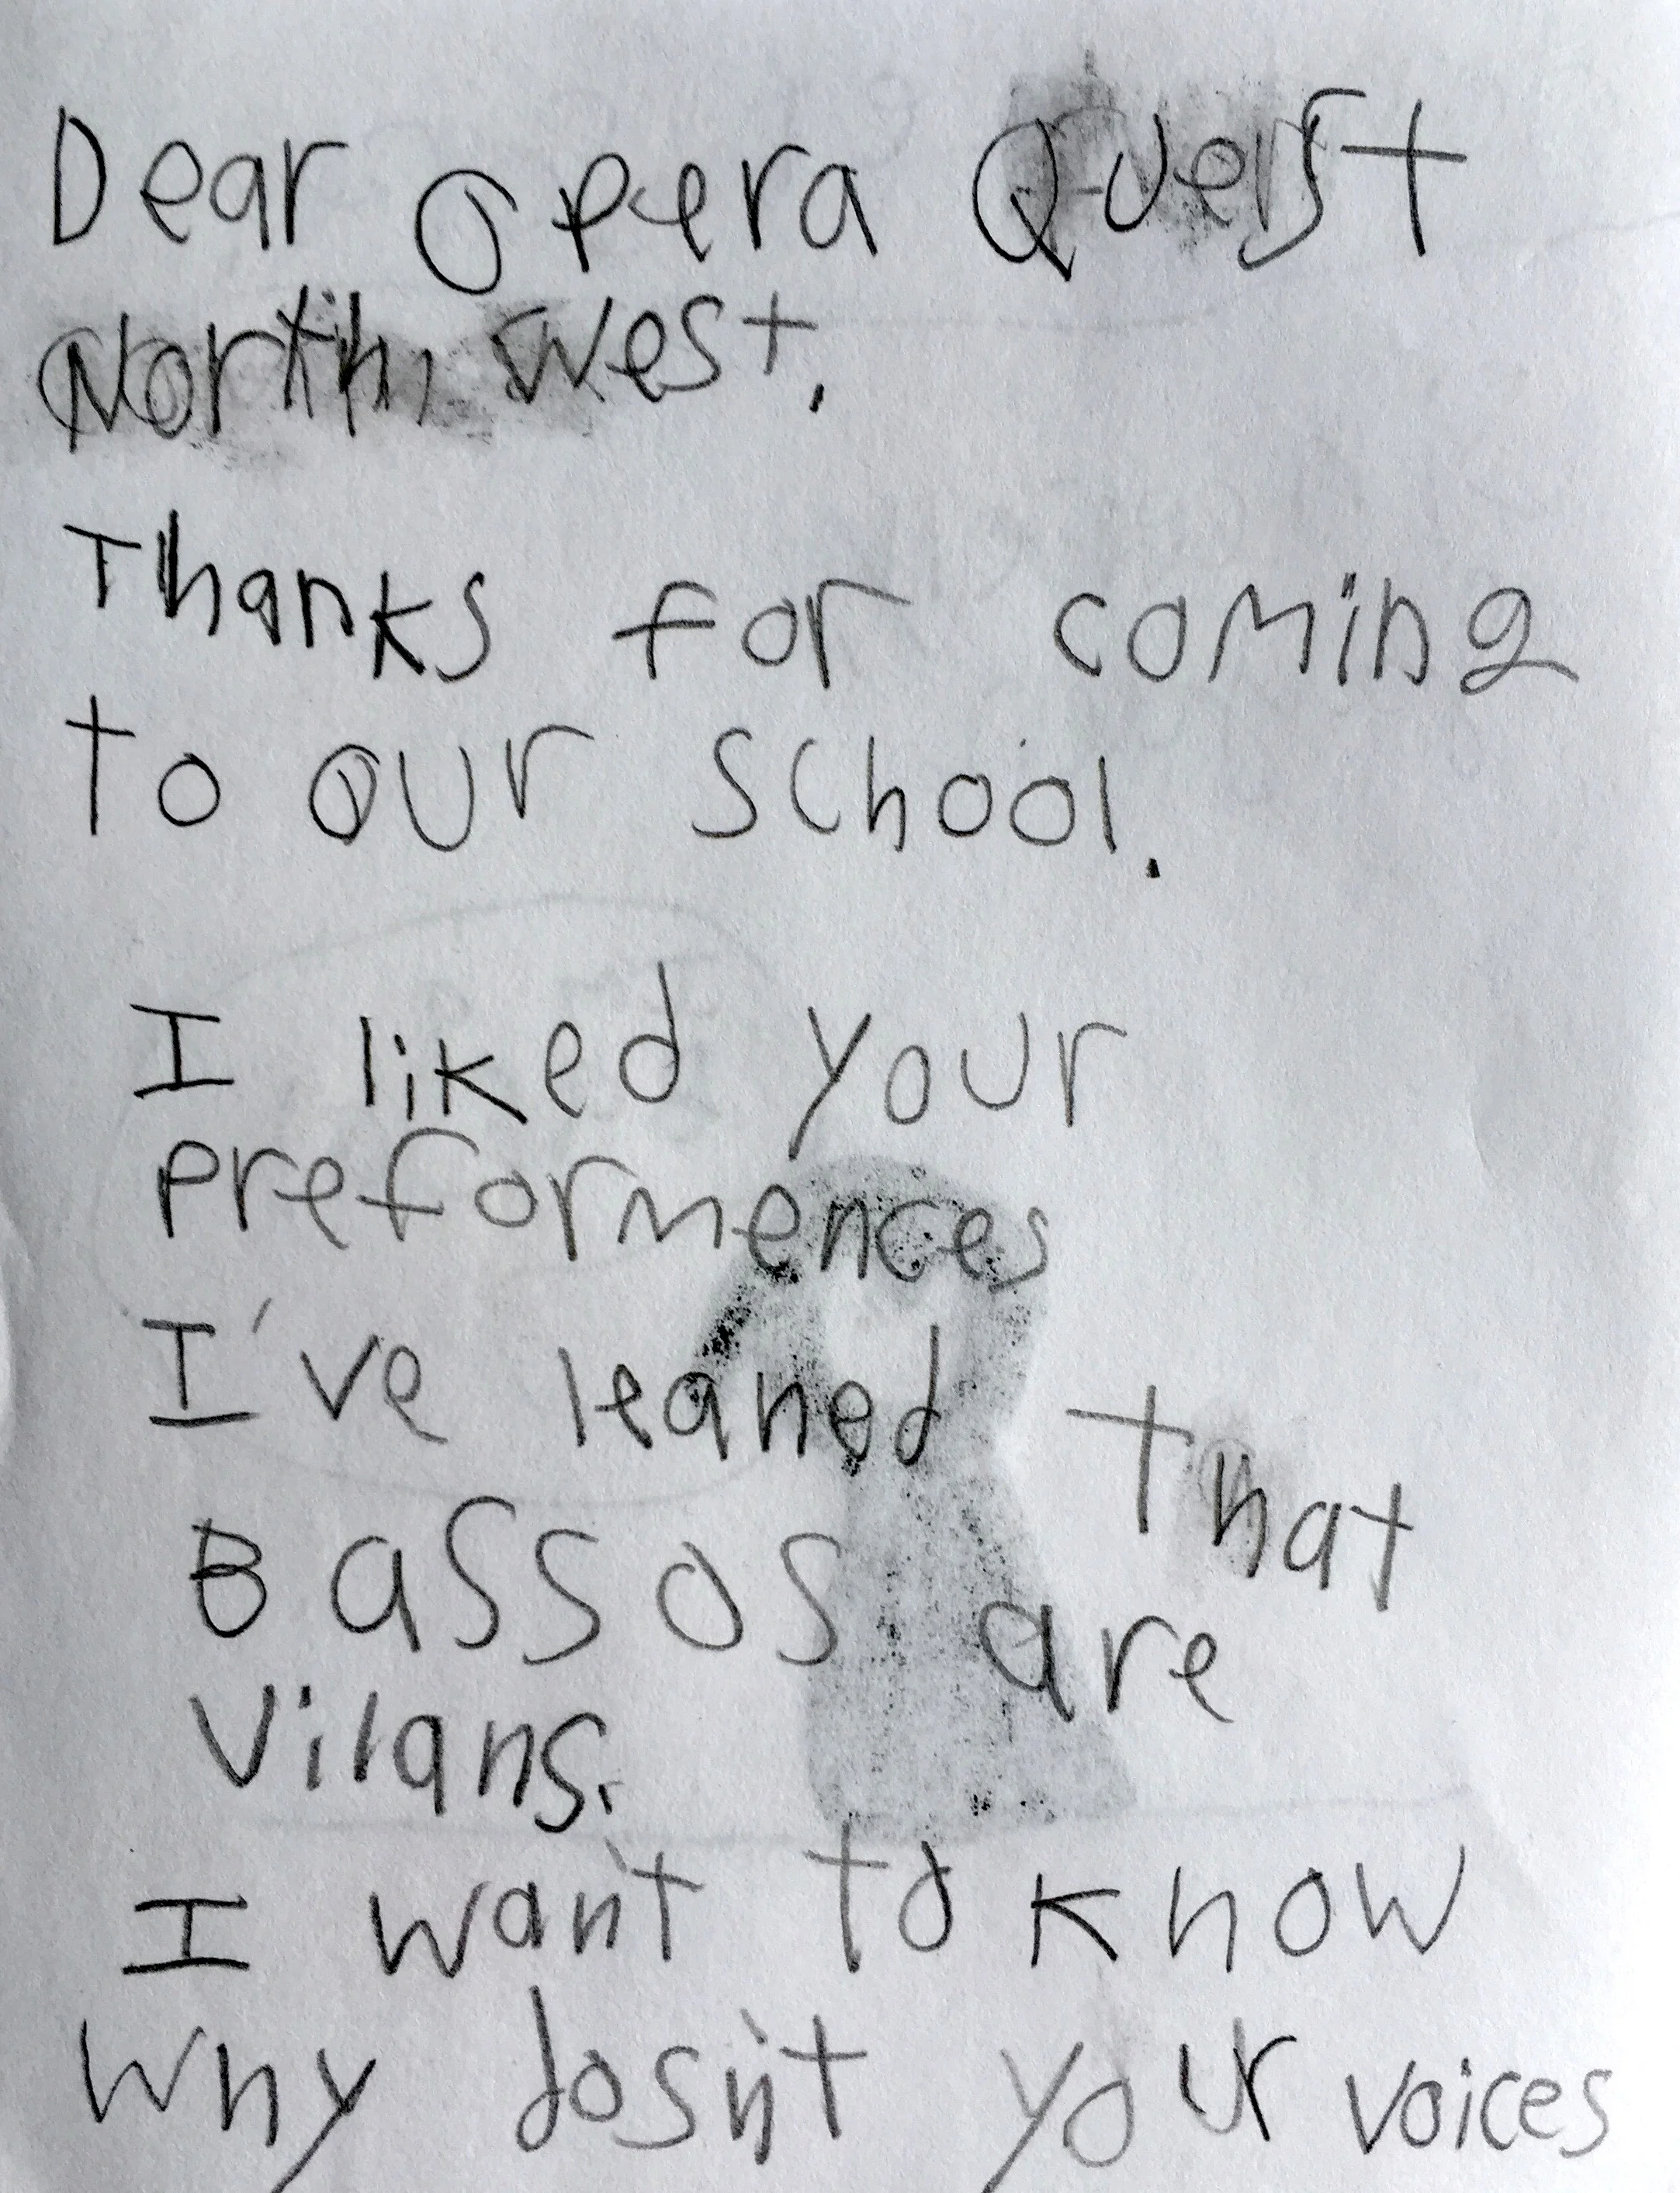 Dear Opera Quest
North West,
Thanks for coming
to our school.
I liked your
preformences
I've leaned that
Bassos are
Vilans.
I wan't to know
Why dosn't your voices